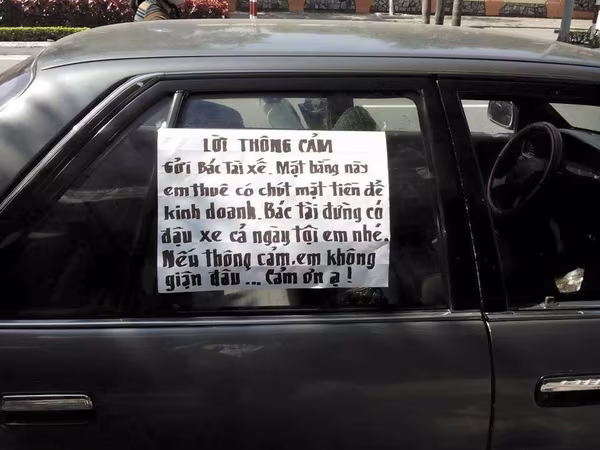 LỜI THÔNG CẢM
Gởi Bác Tài xế. Mặt bằng này
em thuê có chót mặt tiền để
kinh doanh. Bác tài đừng có
đậu xe cả ngày tội em nhé.
Nếu thông cảm, em không
giận đâu... Cảm ơn ạ!